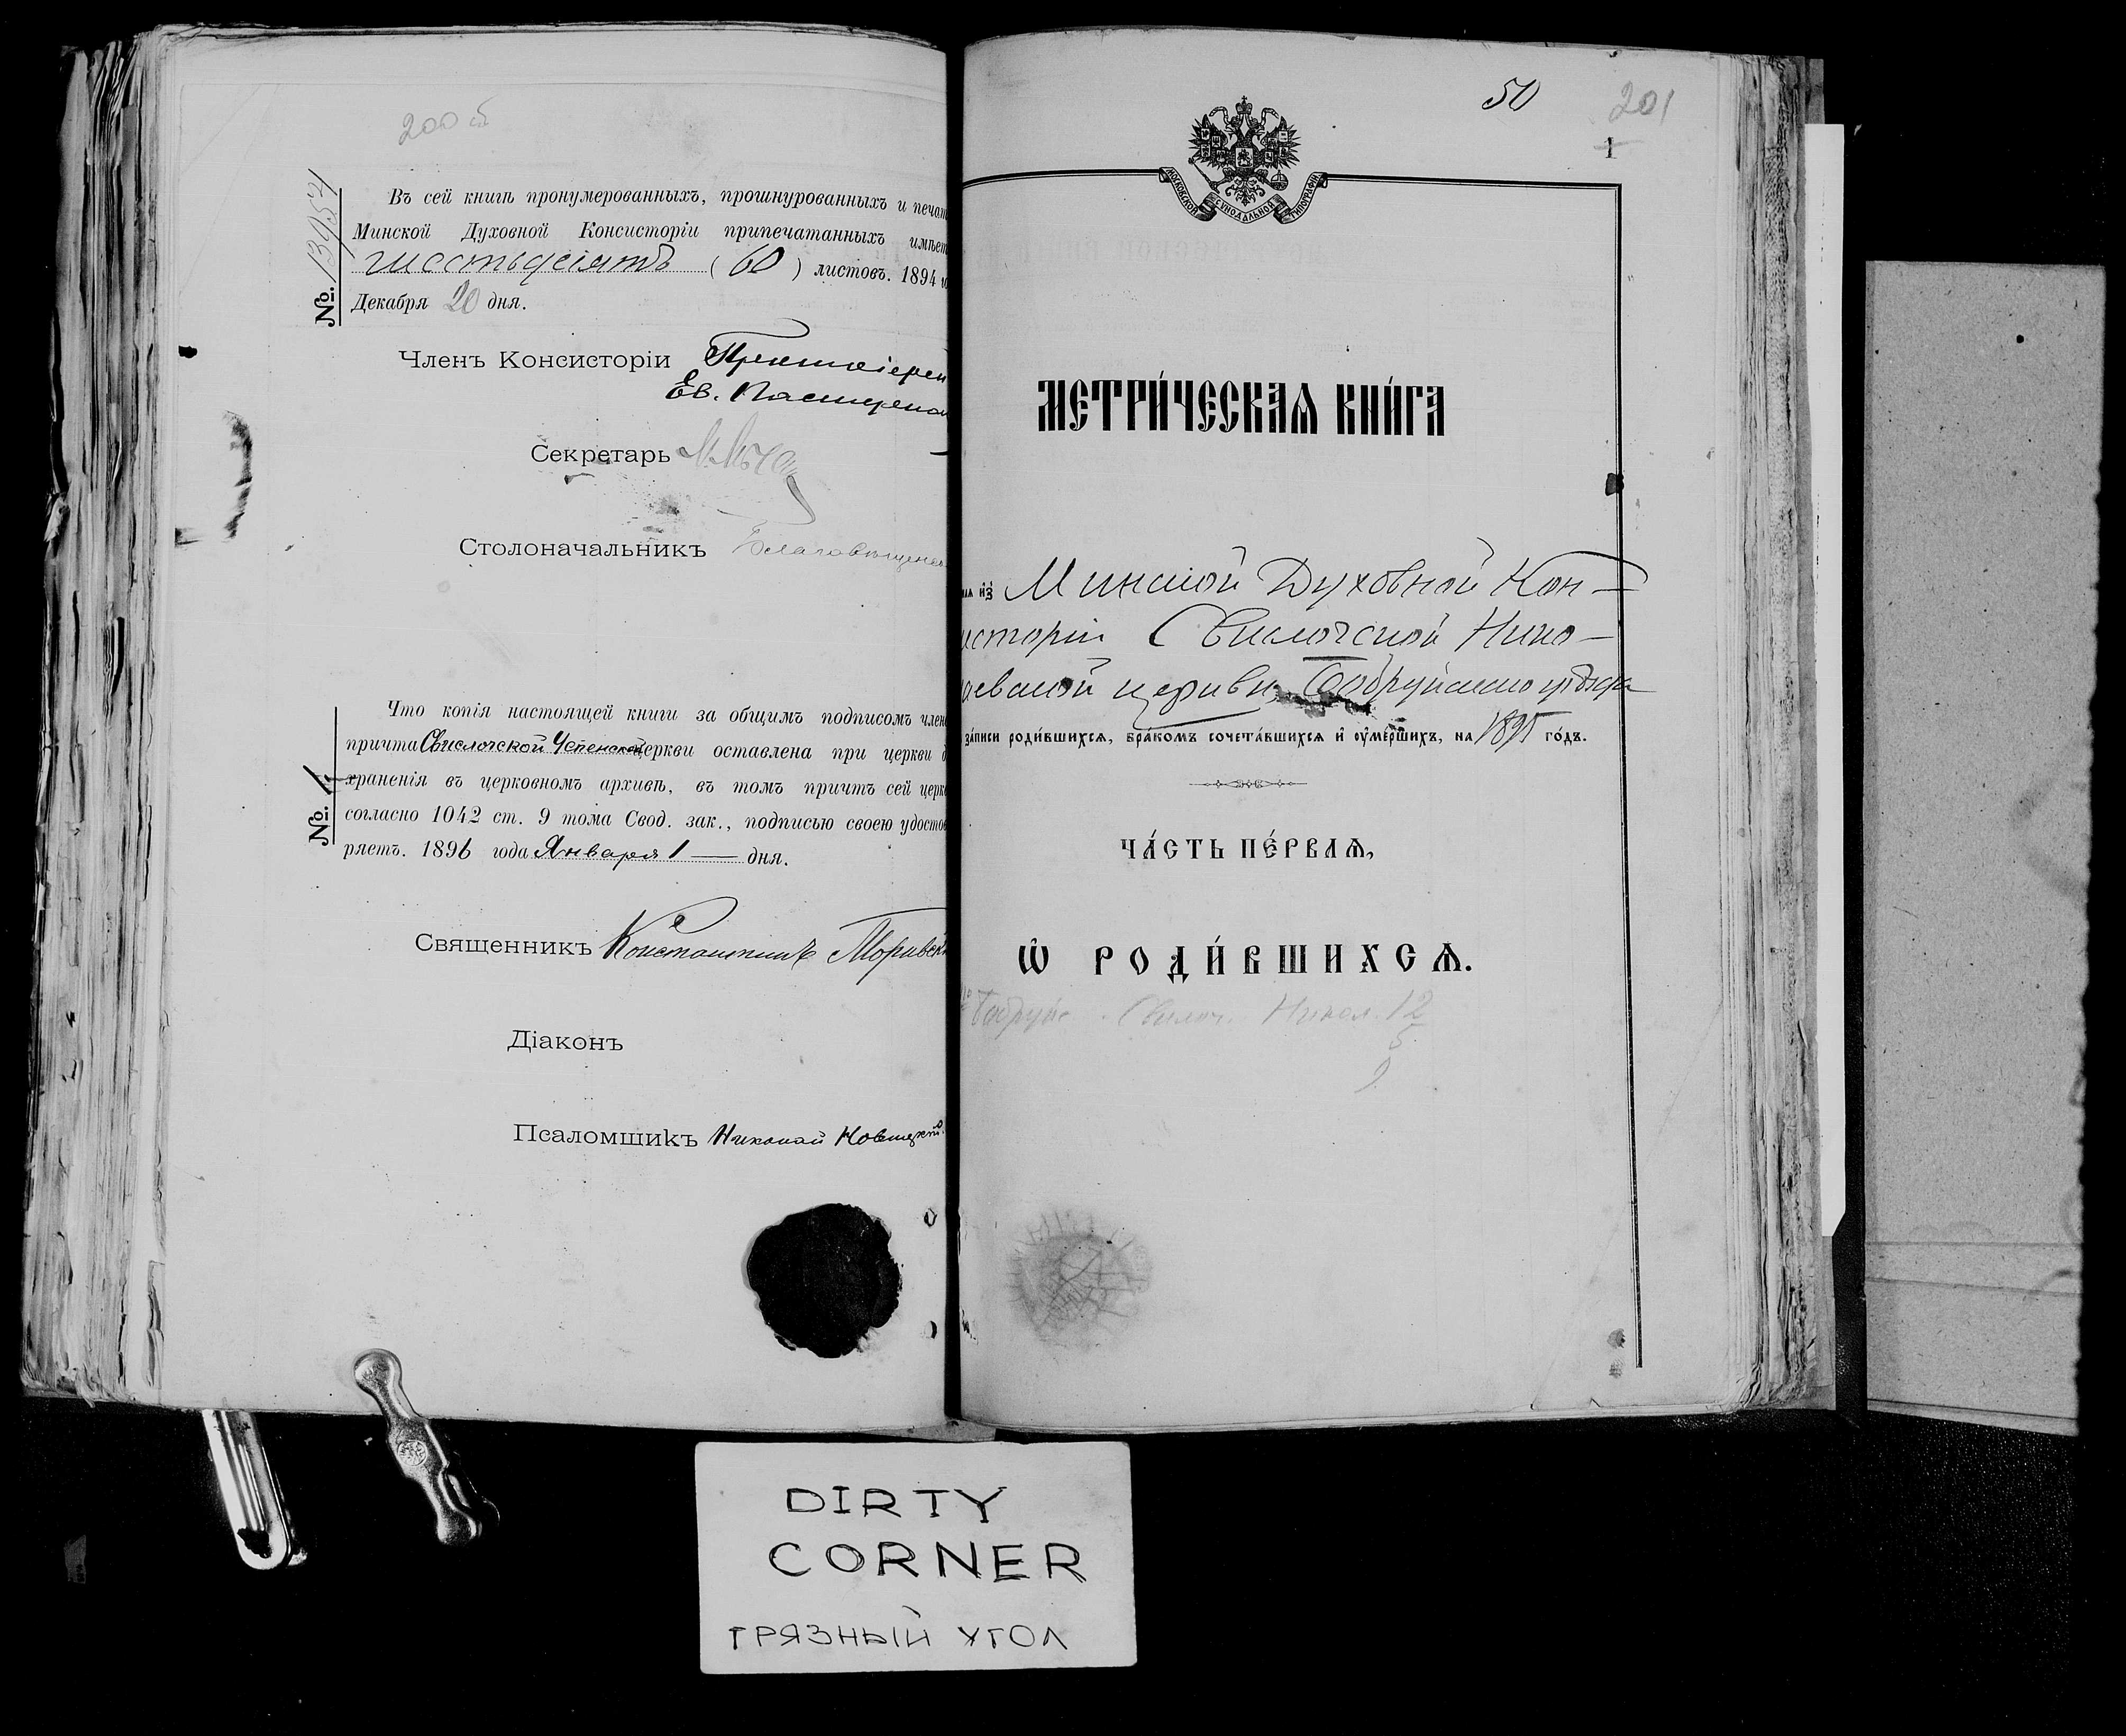 200 об
№. 13957
Въ сей книгѣ пронумерованныхъ, прошнурованныхъ и печат
Минской Духовной Консисторіи припечатанныхъ имѣет
шестьдесятъ (60) листовъ. 1894 го
Декабря 20 дня.
Членъ Консисторіи Протоіерей
Ев.
Секретарь
Столоначальникъ Благовѣщенс
№. 1
Что копія настоящей книги за общимъ подписомъ члено
причта Свислочской Успенской церкви оставлена при церкви д
храненія въ церковномъ архивѣ, въ томъ причтъ сей церк
согласно 1042 ст. 9 тома Свод. зак., подписью своею удостов
ряетъ. 1896 года Января 1 — дня.
Священникъ Константинъ
Діаконъ
Псаломщикъ Николай Новицкій
50
201
1
МОСКОВСКОЙ СѴНОДАЛЬНОЙ ТИПОГРАФІИ
МЕТРИ́ЧЕСКАѦ КНИ́ГА
из Минской Духовной Кон-
систоріи Свислочской Нико-
лаевской церкви, Бобруйскаго уѣзда
за́писи роди́вшихся, бра́комъ сочета́вшихся и҆ ѹ҆ме́ршихъ, на 1895 го́дъ.
ЧА́СТЬ ПЕ́РВАѦ,
Ѡ҆ РОДИ́ВШИХСѦ.
Бобруйс. Свислоч. Никол. 12
5
9
DIRTY
CORNER
ГРЯЗНЫЙ УГОЛ